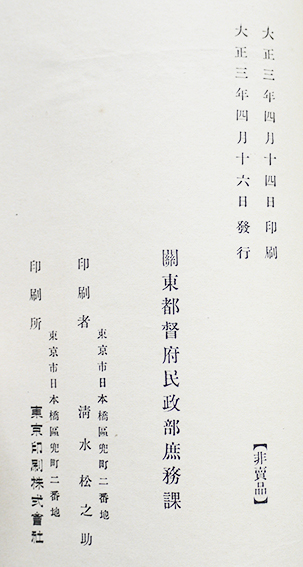 大正三年四月十四日印刷
大正三年四月十六日發行
【非賣品】
關東都督府民政部庶務課
東京市日本橋區兜町二番地
印刷者　淸水松之助
東京市日本橋區兜町二番地
印刷所　東京印刷株式會社